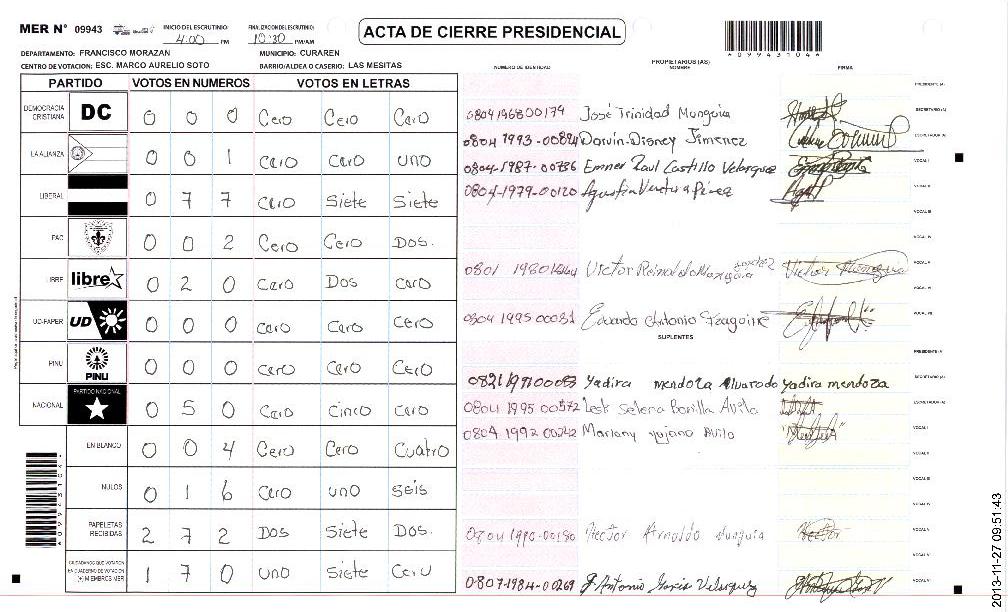 MER N° 09943 INICIO DEL ESCRUTINIO: 4:00 PM FINALIZACION DEL ESCRUTINIO: 10:30 PM/AM
ACTA DE CIERRE PRESIDENCIAL
*099431044*
DEPARTAMENTO: FRANCISCO MORAZAN MUNICIPIO: CURAREN
CENTRO DE VOTACION: ESC. MARCO AURELIO SOTO BARRIO/ALDEA O CASERIO: LAS MESITAS
NUMERO DE IDENTIDAD PROPIETARIOS (AS) NOMBRE FIRMA
PARTIDO VOTOS EN NUMEROS VOTOS EN LETRAS
PRESIDENTE (A)
DEMOCRACIA CRISTIANA DC 0 0 0 Cero Cero Cero
0804196800174 José Trinidad Munguia SECRETARIO (A)
0804 1993-00894 Darwin Disney Jimenez ESCRUTADOR (A)
LA ALIANZA 0 0 1 Cero Cero uno
0804-1987-00786 Emner Raul Castillo Velasquez VOCAL I
LIBERAL 0 7 7 Cero Siete Siete
0804-1979-00120 Agustin Ventura Pérez VOCAL II
VOCAL III
PAC 0 0 2 Cero Cero Dos.
VOCAL IV
LIBRE libre 0 2 0 Cero Dos Cero
0801 1980 Victor Reinaldo VOCAL V
VOCAL VI
UD-FAPER UD 0 0 0 Cero Cero Cero
0804 1995 00081 Eduardo Antonio VOCAL VII
SUPLENTES
PRESIDENTE (A)
PINU PINU 0 0 0 Cero Cero Cero
Yadira mendoza Alvarado yadira mendoza SECRETARIO (A)
NACIONAL PARTIDO NACIONAL 0 5 0 Cero Cinco Cero
0801 1995 00572 Selena Bonilla Avila ESCRUTADOR (A)
0801 1992 00242 Mariany Avila VOCAL I
EN BLANCO 0 0 4 Cero Cero Cuatro
VOCAL II
VOCAL III
NULOS 0 1 6 Cero uno Seis
VOCAL IV
PAPELETAS RECIBIDAS 2 7 2 Dos Siete Dos.
0804 1990-00180 Hector Arnaldo Munguia VOCAL V
VOCAL VI
CIUDADANOS QUE VOTARON EN CUADERNO DE VOTACION (+) MIEMBROS MER 1 7 0 uno Siete Cero
0807-1984-00269 J. Antonio Garcia Velasquez VOCAL VII
2013-11-27 09:51:43